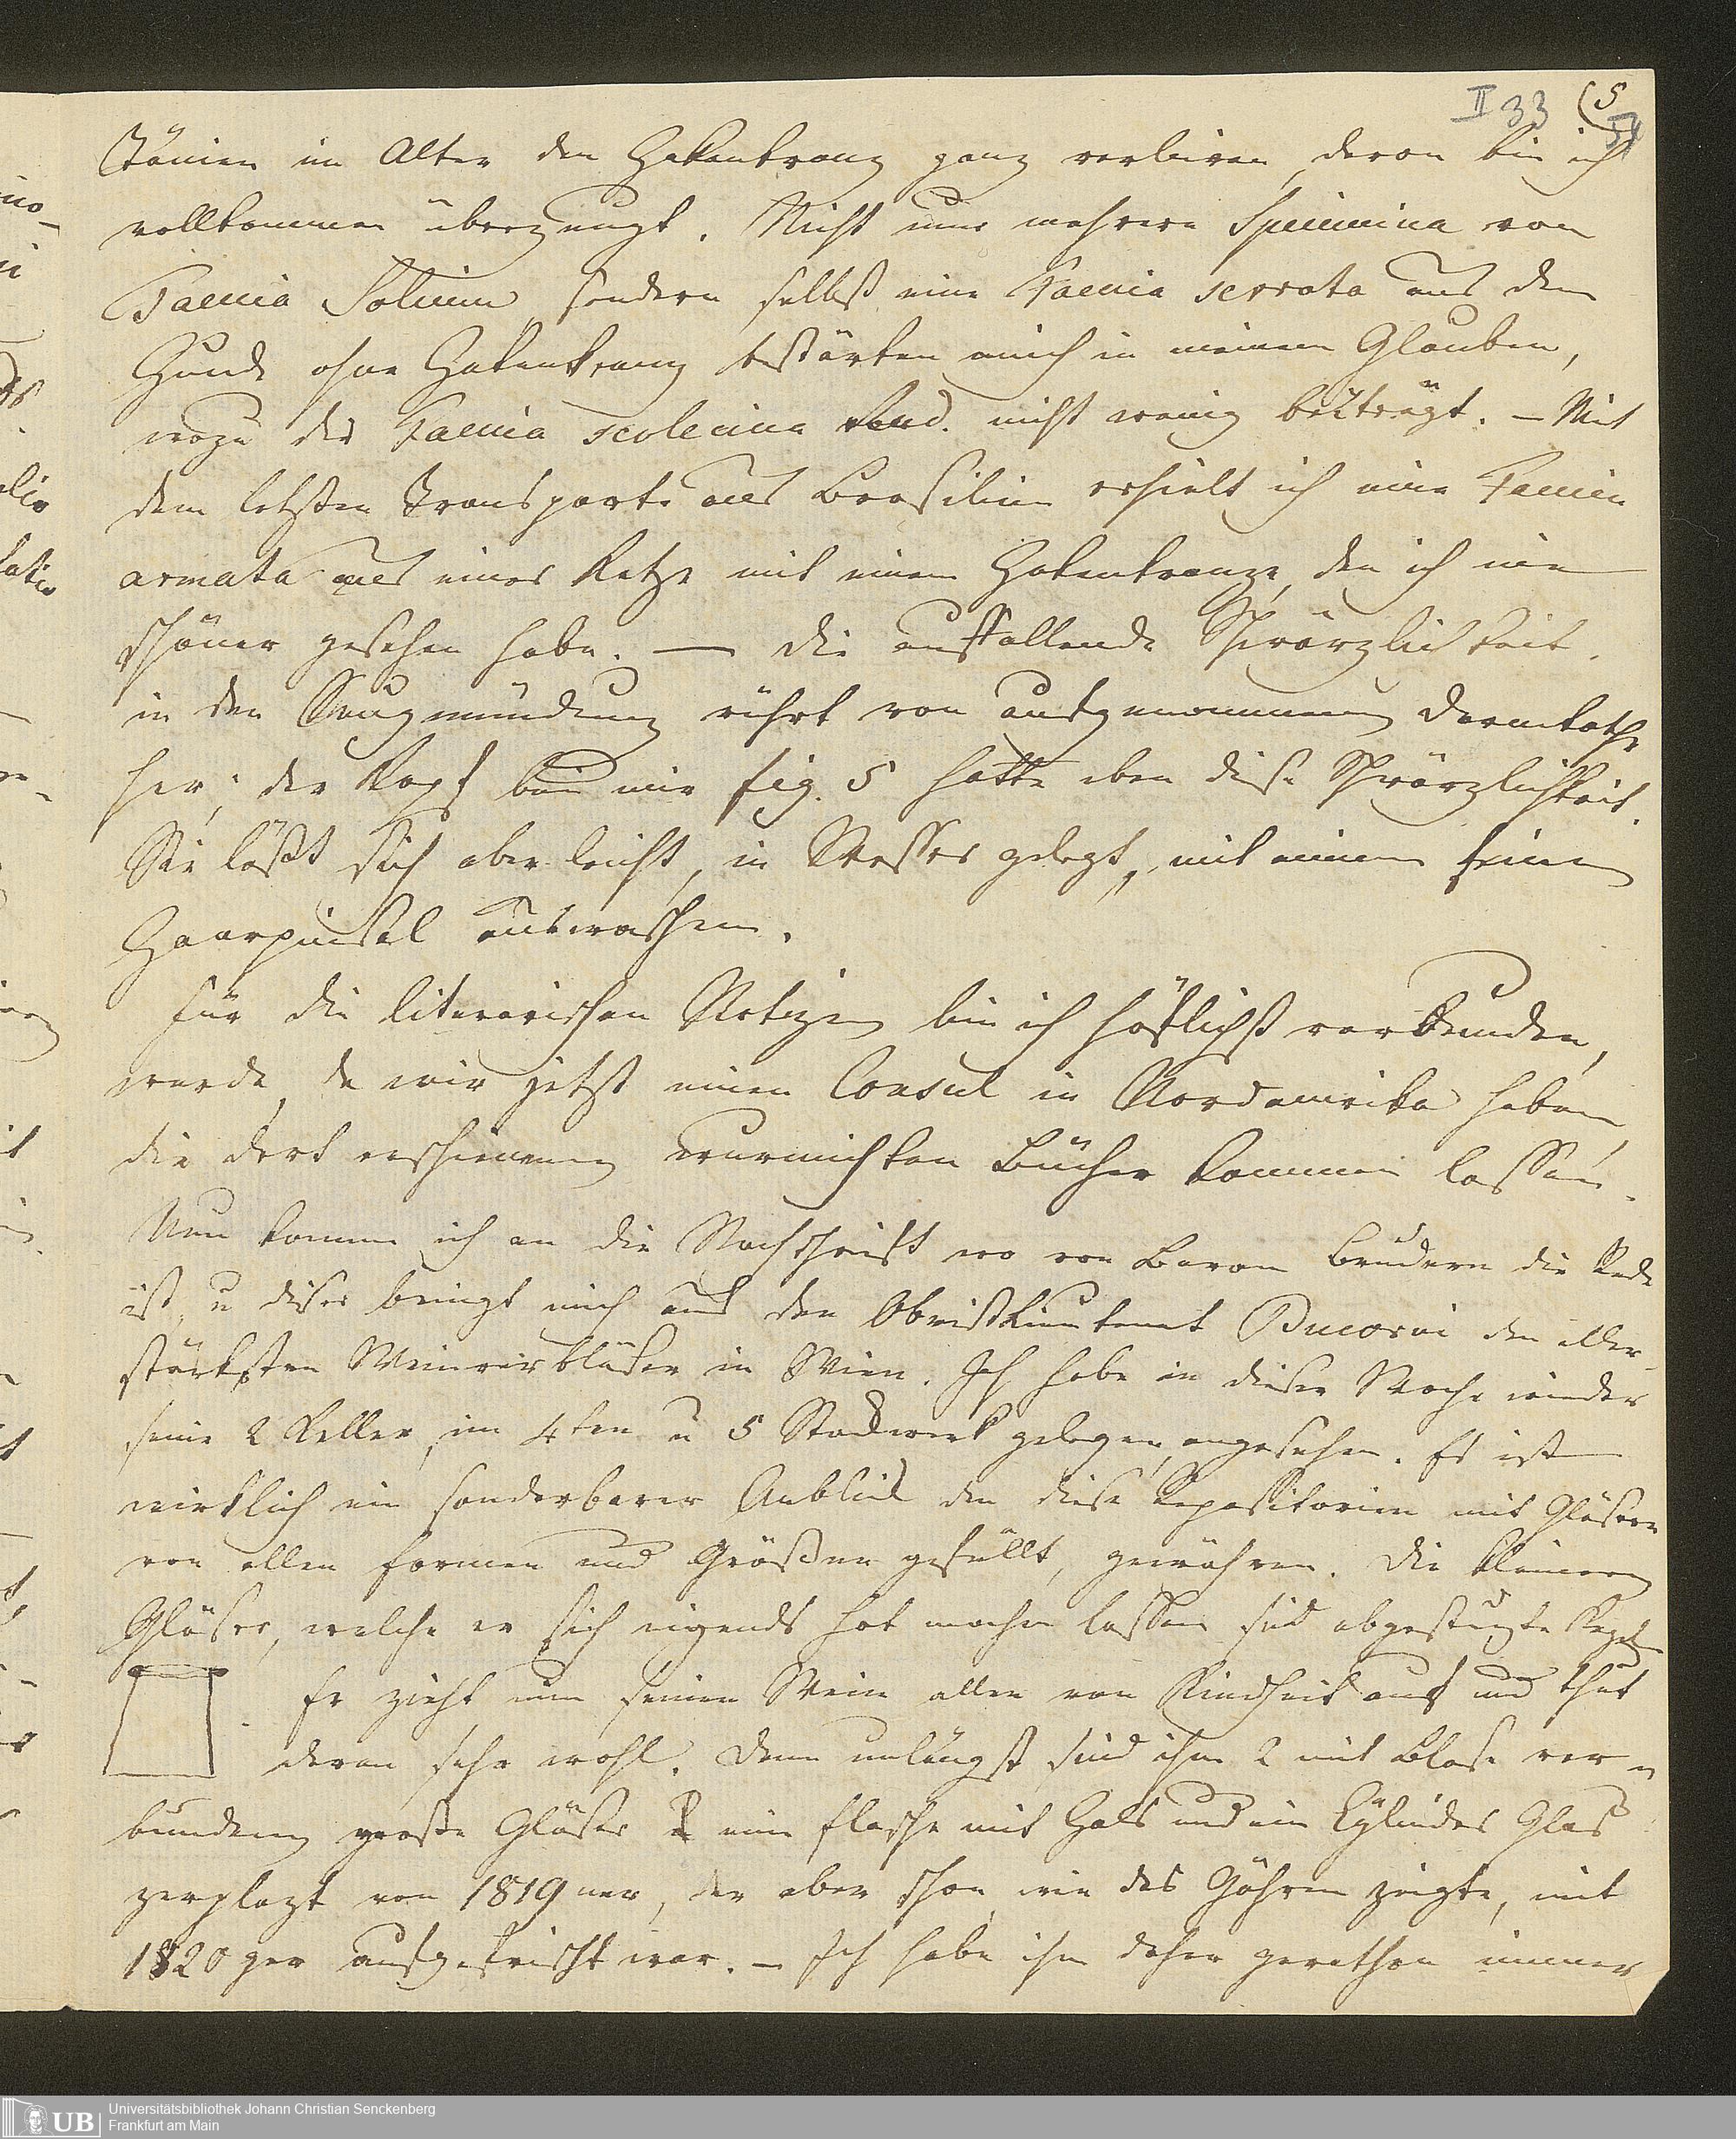 II 33 (5
Tänien im Alter den Hakenkranz ganz verlieren, davon bin ich
vollkommen überzeugt. Nicht nur mehrere Specimina von
Taenia Solium, sondern selbst eine Taenia serrata aus dem
Hunde ohne Hakenkranz bestärken mich in meinem Glauben,
wozu die Taenia scolecina Rud. nicht wenig beiträgt. – Mit
dem letzten Transporte aus Brasilien erhielt ich eine Taenia
armata aus einer Katze mit einem Hakenkranze, den ich nie
schöner gesehen habe. — Die auffallende Schwärzlichkeit
in den Saugmündung rührt von aufgenommenen Darmkothe
her; der Kopf bei mir fig. 5 hatte eben diese Schwärzlichkeit.
Sie läßt sich aber leicht, in Wasser gelegt, mit einem feinen
Haarpinsel auswaschen.
Für die literarischen Notizen bin ich höflichst verbunden,
werde, da wir jetzt einen Consul in Nordamerika haben,
die dort erschienenen Bücher kommen lassen.
Nun komme ich an die Nachschrift wo von Baron Brudern die Rede
ist, u dieser bringt mich auf den Obristlieutenant den aller-
stärksten in Wien. Ich habe in dieser Woche wieder
seine 2 Keller, im 4ten u 5 Stockwerk gelegen, angesehen. Es ist
wirklich ein sonderbarer Anblick den diese Repositorien mit Gläsern
von allen Formen und Größen gefüllt, gewähren. Die kleineren
Gläser, welche er sich eigends hat machen lassen sind abgestuzte Kegel
. Er zieht nun seinen Wein allen von Kindheit auf und thut
daran sehr wohl. Denn unlängst sind ihm 2 mit Blase ver-
bundene große Gläser eine Flasche mit Hals und ein Cylinder Glas
zerplazt von 1819ner, der aber schon, wie das Gähren zeigte, mit
1820ger aufgefrischt war. – Ich habe ihm daher gerathen immer
Universitätsbibliothek Johann Christian Senckenberg
UB
Frankfurt am Main